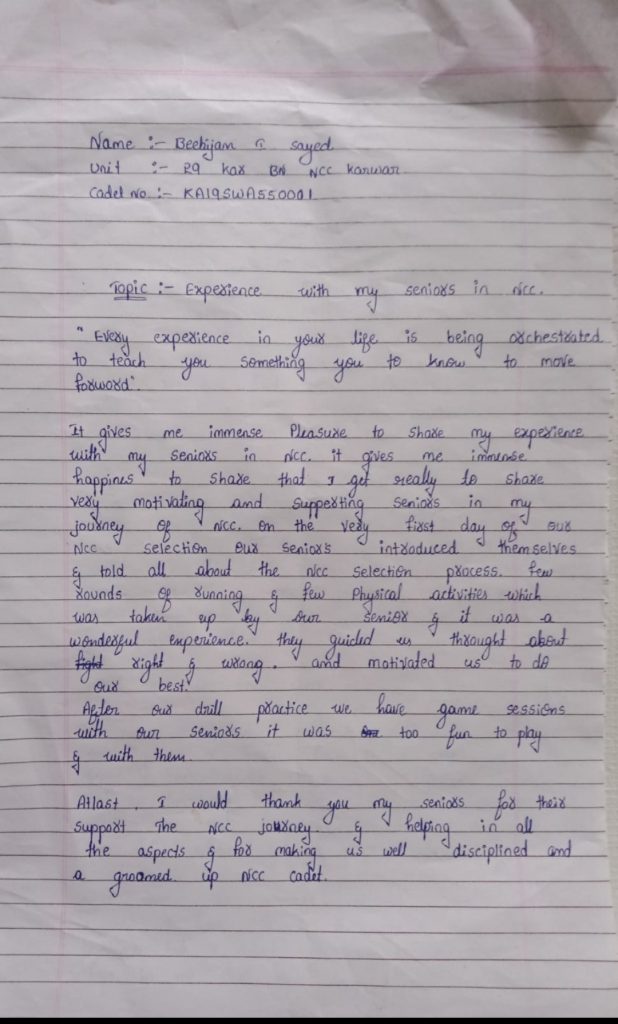 Name :- Beebijan I sayed
Unit :- 29 kar BN NCC karwar
Cadet No :- KA19SWA550001
Topic :- Experience with my seniors in NCC.
" Every experience in your life is being orchestrated
to teach you something you to know to move
forword".
It gives me immense Pleasure to share my experience
with my seniors in NCC. it gives me immense
happines to share that I get really to share
very motivating and supperting seniors in my
journey of NCC. on the very first day of our
NCC selection our seniors introduced themselves
& told all about the NCC selection process. few
rounds of running & few Physical activities which
was taken up by our senior & it was a
wonderful experience. they guided us throught about
fight right & wrong. and motivated us to do
our best.
After our drill practice we have game sessions
with our seniors it was too fun to play
& with them.
Atlast, I would thank you my seniors for their
support The NCC journey. & helping in all
the aspects & for making us well disciplined and
a groomed up NCC cadet.